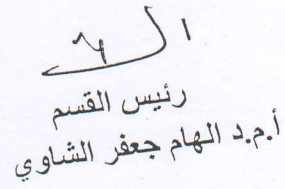 رئيس القسم
أ.م.د الهام جعفر الشاوي